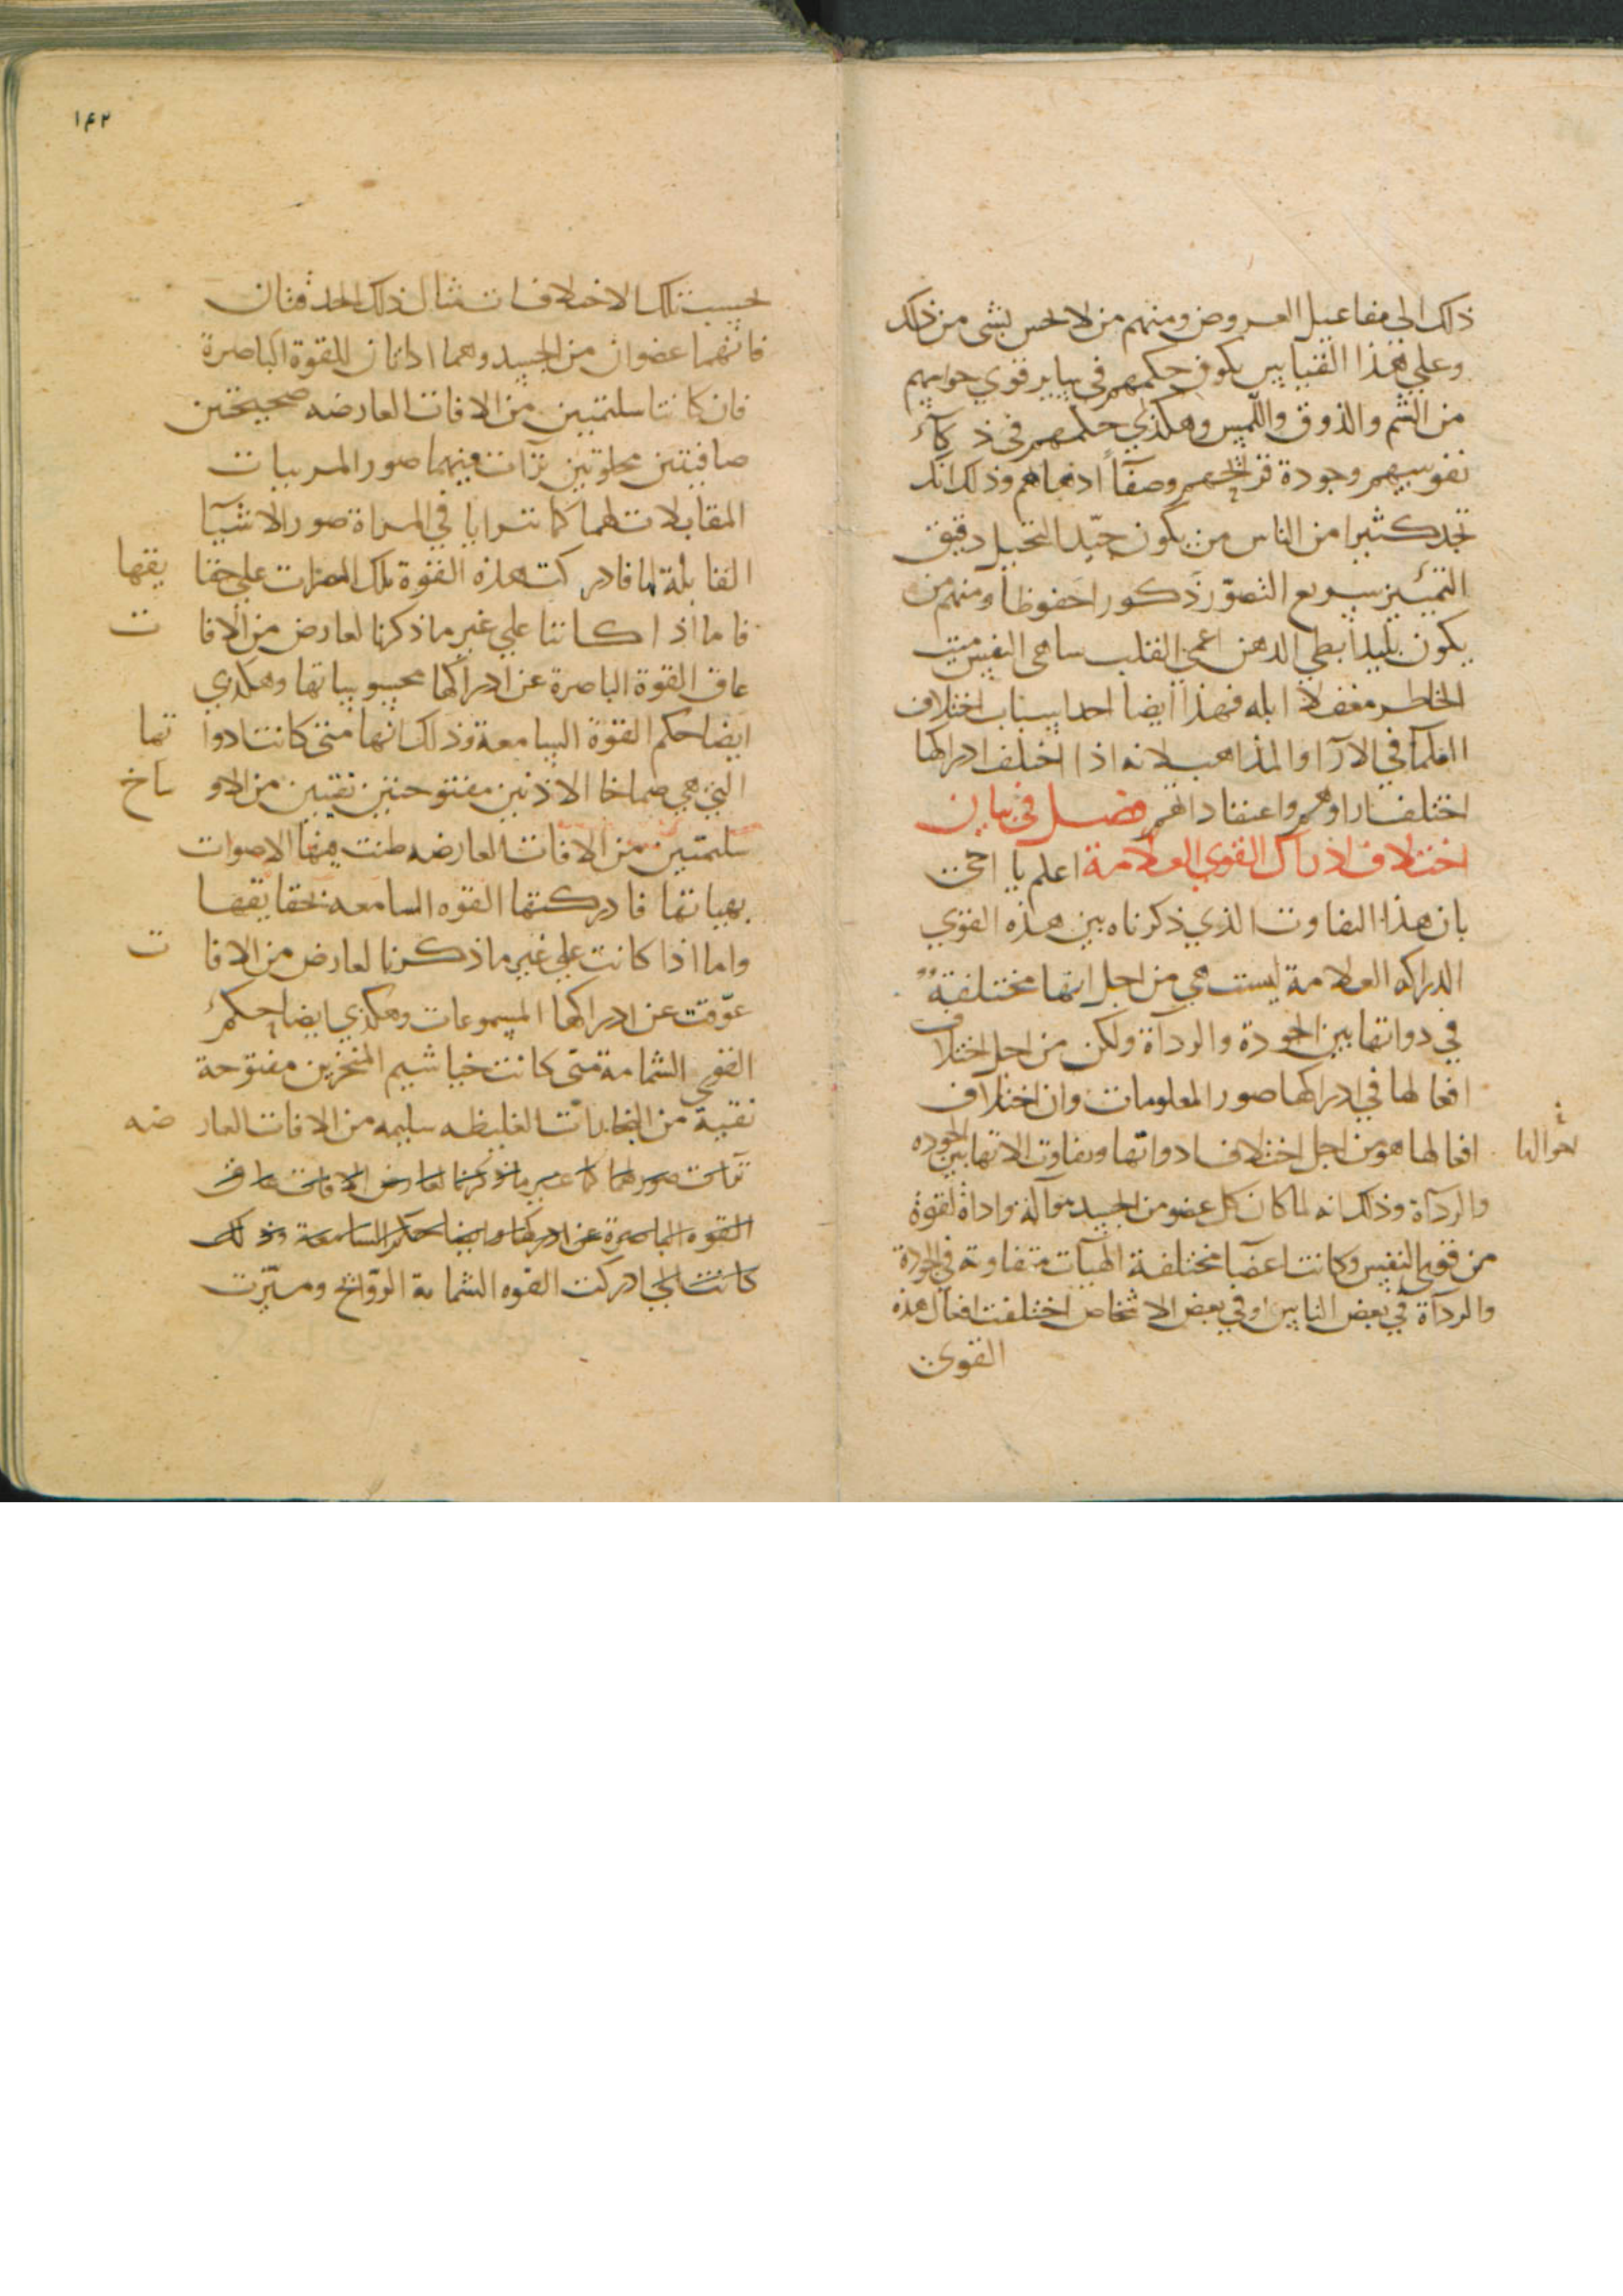 ذلك الى مفاعيل العروض ومنهم من لا يحس بشى من ذلك
وعلى هذا القياس يكون حكمهم في ساير قوي حواسهم
من الشم والذوق واللمس وهكذي حكمهم في ذكآء
نفوسهم وجودة قرايحهم وصفآء اذهانهم وذلك انك
تجد كثيرا من الناس من يكون جيّد التخيل دقيق
التمييز سريع التصوّر ذكورا حفوظا ومنهم من
يكون بليدا بطى الذهن اعمى القلب ساهى النفس ميت
الخاطر مغفلا ابله فهذا ايضا احد اسباب اختلاف
العلمآ في الارآ والمذاهب لانه اذا اختلف ادراكها
اختلف اراوهم واعتقاداتهم فصل في بيان
اختلاف ادراك القوي العلامة اعلم يا اخى
بان هذا التفاوت الذي ذكرناه بين هذه القوي
الدراكه العلامة ليست هي من اجل انها مختلفة
في ذواتها بين الجودة والردآة ولكن من اجل اختلاف
افعالها في ادراكها صور المعلومات وان اختلاف
افعالها هو من اجل اختلاف ادواتها وتفاوت الاتها بين الجوده
احوالها
والردآة وذلك انه لما كان كل عضو من الجسد هو آلة واداة لقوة
من قوى النفس وكانت اعضا مختلفة الهيآت متفاوتة في الجودة
والردآة في بعض الناس او في بعض الاشخاص اختلفت افعال هذه
القوى
١٤٢
بحسب تلك الاختلافات مثال ذلك الحدقتان
فانهما عضوان من الجسد وهما اداتان للقوة الباصرة
فان كانتا سليمتين من الافات العارضه صحيحتين
صافيتين مجلوتين ترآت فيهما صور المرييات
المقابلات لهما كما تترايا في المراة صور الاشيآ
المقابلة لها فادركت هذه القوة تلك المبصرات على حقايقها
فاما اذا كانتا على غير ما ذكرنا لعارض من الافات
عاق القوة الباصرة عن ادراكها محسوساتها وهكذي
ايضا حكم القوة السامعة وذلك انها متى كانت ادواتها
التي هي صماخا الاذنين مفتوحتين نقيتين من الاوساخ
سليمتين من الافات العارضه طنت فيها الاصوات
بهياتها فادركتها القوه السامعه بحقايقها
واما اذا كانت على غير ما ذكرنا لعارض من الافات
عوّقت عن ادراكها المسموعات وهكذي ايضا حكم
القوى الشمامة متى كانت خياشيم المنخرين مفتوحة
نقية من البخارات الغليظه سليمه من الافات العارضه
القوه الباصرة عن ادراكها وايضا حكم السامعة وذلك
ادركت القوه الشمامة الروّايح وميّزت